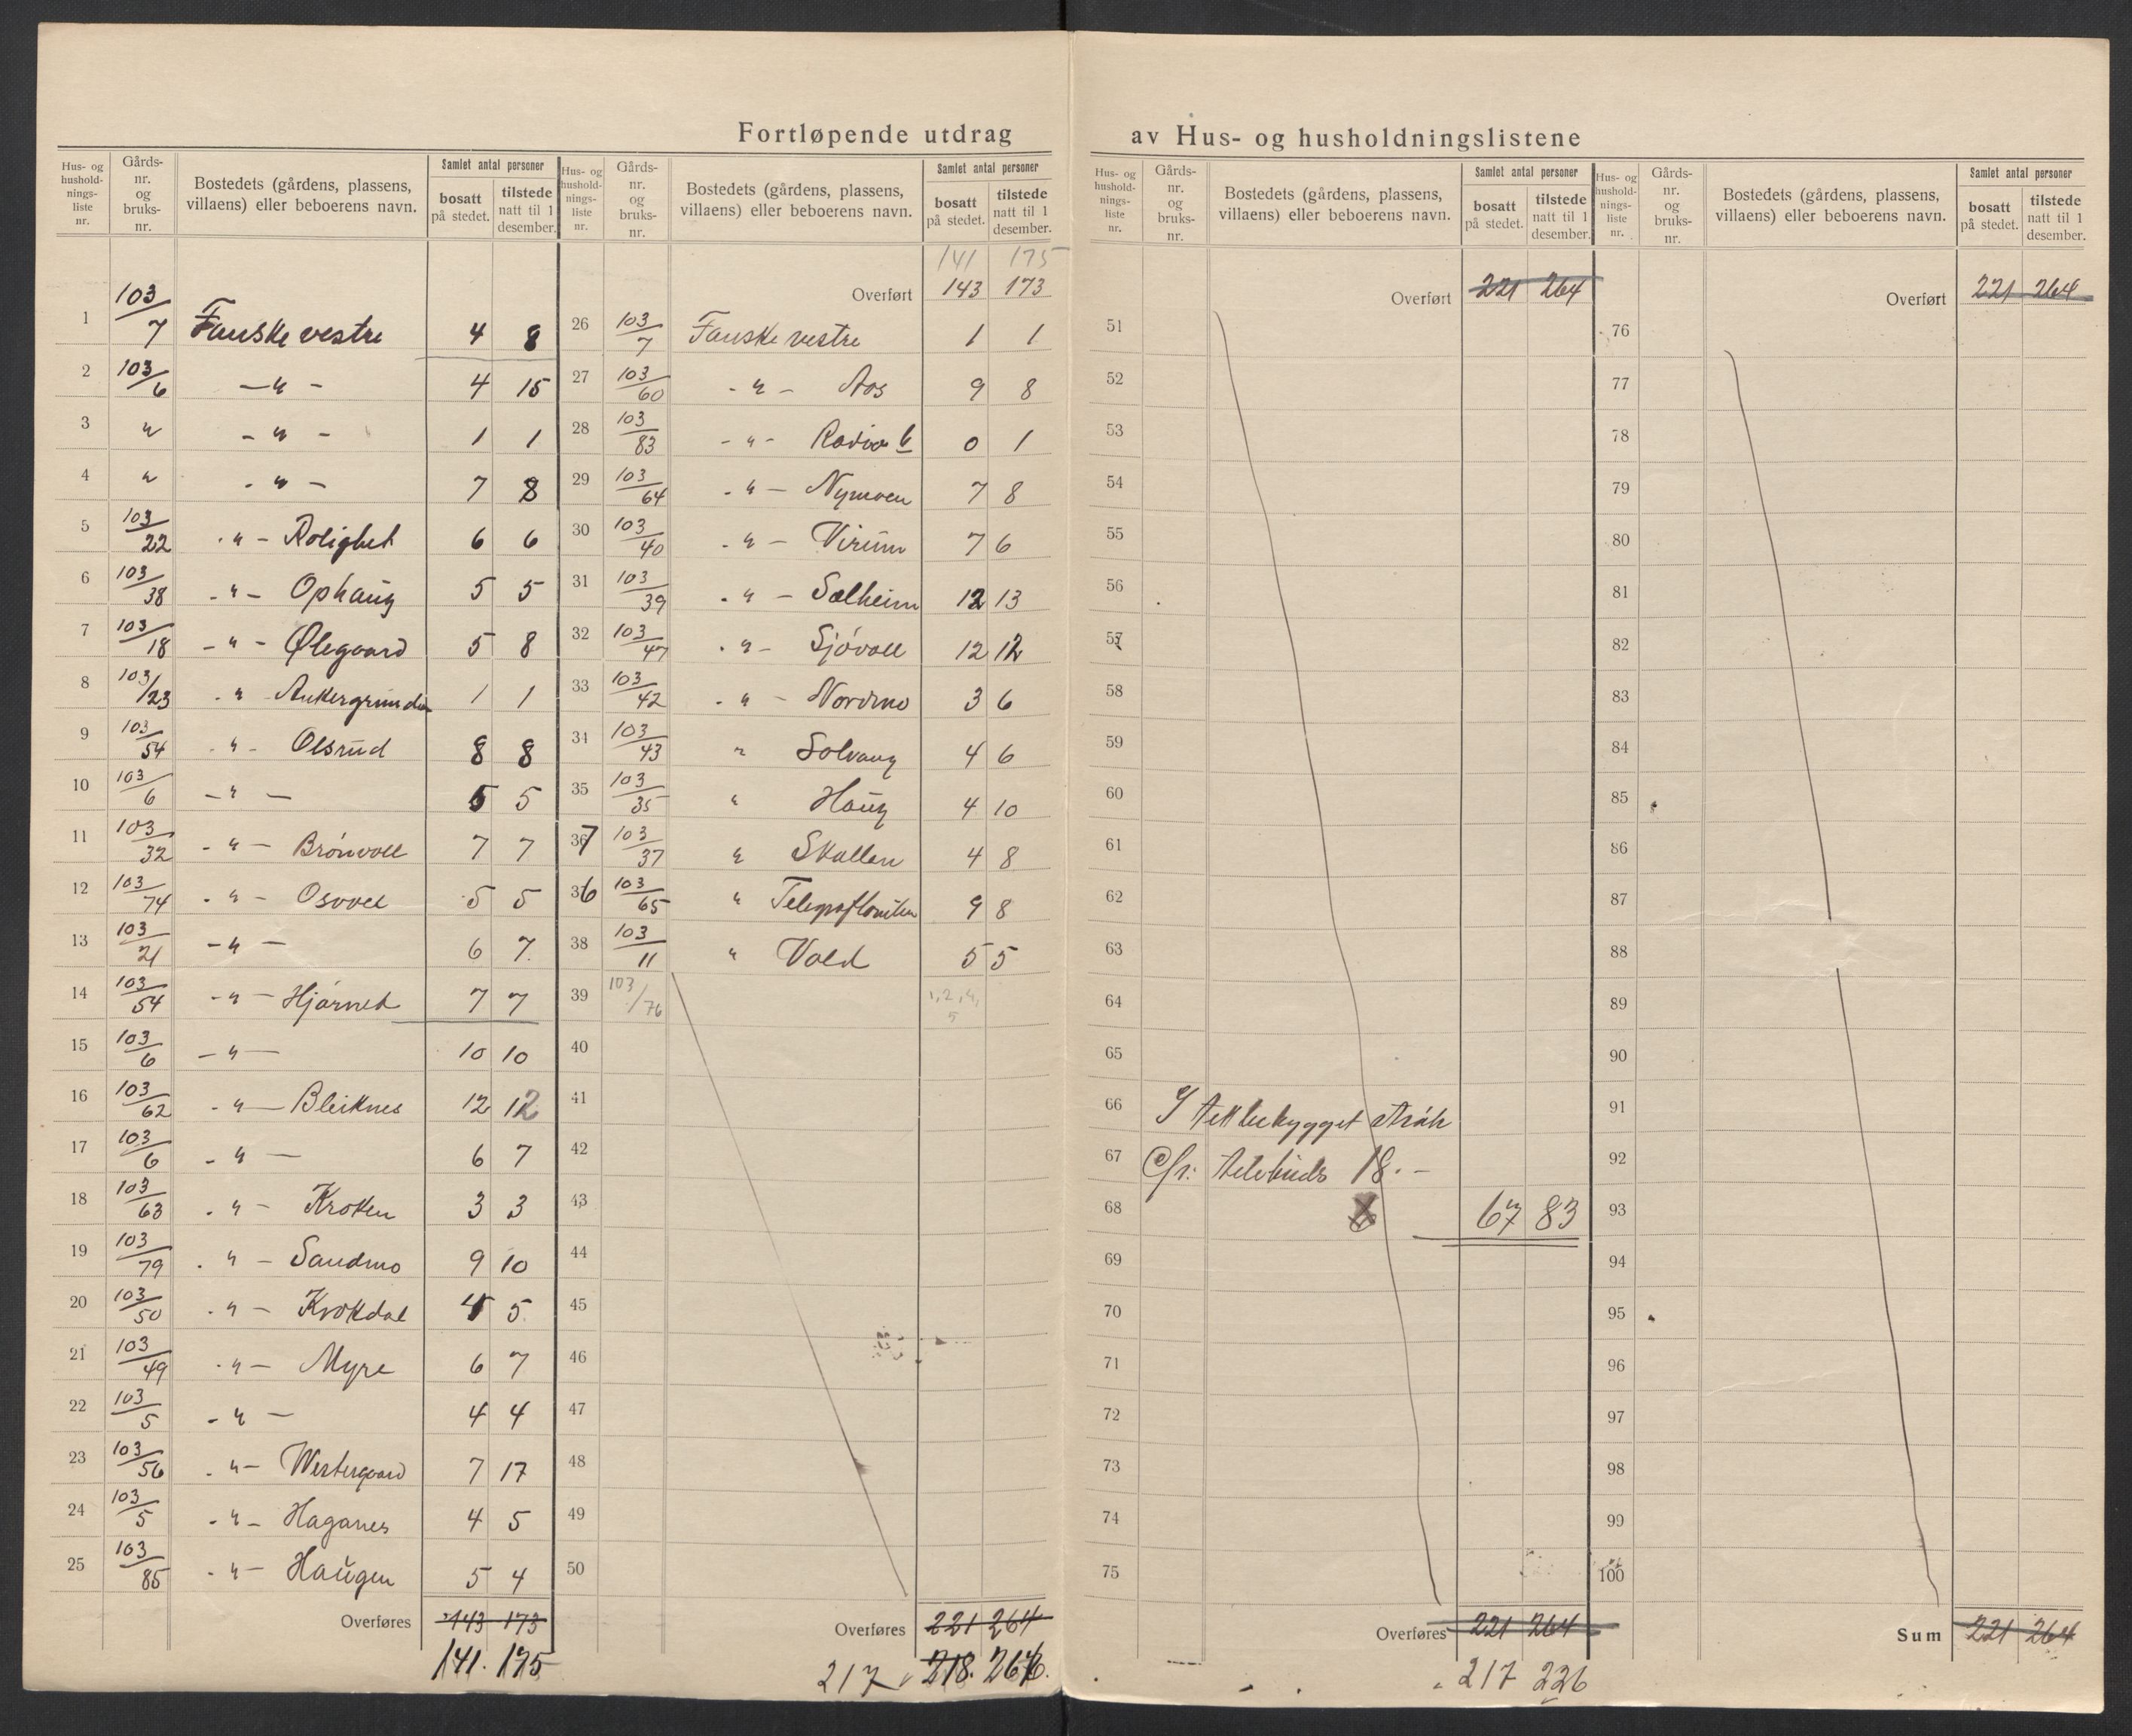 Fortløpende utdrag av Hus- og husholdningslistene
Hus- og hushold-nings-liste nr. Gårds-nr. og bruks-nr. Bostedets (gårdens, plassens, villaens) eller beboerens navn. Samlet antal personer bosatt på stedet. tilstede natt til 1 desember.
1 103/7 Fauske vestre 4 8
2 103/6 —„— 4 15
3 „ —„— 1 1
4 „ —„— 7 8
5 103/22 —„— Rolighet 6 6
6 103/38 —„— Ophaug 5 5
7 103/18 —„— Ølegaard 5 8
8 103/23 „ Ankergrunden 1 1
9 103/54 —„— Olsrud 8 8
10 103/6 —„— 5 5
11 103/32 —„— Brønvoll 7 7
12 103/74 —„— Osvoll 5 5
13 103/21 —„— 6 7
14 103/54 —„— Hjørnet 7 7
15 103/6 —„— 10 10
16 103/62 —„— Bleiknes 12 12
17 103/6 —„— 6 7
18 103/63 —„— Kroken 3 3
19 103/79 —„— Sandmo 9 10
20 103/50 —„— Krokdal 4 5
21 103/49 —„— Myre 6 7
22 103/5 —„— 4 4
23 103/56 —„— Westergaard 7 17
24 103/5 —„— Haganes 4 5
25 103/85 —„— Haugen 5 4
Overføres 143 173
141. 175
Hus- og hushold-nings-liste nr. Gårds-nr. og bruks-nr. Bostedets (gårdens, plassens, villaens) eller beboerens navn. Samlet antal personer bosatt på stedet. tilstede natt til 1 desember.
141 175
Overført 143 173
26 103/7 Fauske vestre 1 1
27 103/60 —„— Aas 9 8
28 103/83 —„— Radio 0 1
29 103/64 —„— Nymoen 7 8
30 103/40 —„— Virum 7 6
31 103/39 —„— Solheim 12 13
32 103/47 —„— Sjøvoll 12 12
33 103/42 —„— Nordmo 3 6
34 103/43 „ Solvang 4 6
35 103/35 „ Haug 4 10
37 103/37 „ Skallen 4 8
36 103/65 „ Telegraftomten 9 8
38 103/11 „ Vold 5 5
39 103/76 1,2,4, 5
40
41
42
43
44
45
46
47
48
49
50
Overføres 221 264
217 218. 266.
Hus- og hushold-nings-liste nr. Gårds-nr. og bruks-nr. Bostedets (gårdens, plassens, villaens) eller beboerens navn. Samlet antal personer bosatt på stedet. tilstede natt til 1 desember.
Overført 221 264
51
52
53
54
55
56
57
58
59
60
61
62
63
64
65
66 I tettbebygget strøk
67 Cfr. 18.—
68 67 83
69
70
71
72
73
74
75
Overføres 221 264
217 226
Hus- og hushold-nings-liste nr. Gårds-nr. og bruks-nr. Bostedets (gårdens, plassens, villaens) eller beboerens navn. Samlet antal personer bosatt på stedet. tilstede natt til 1 desember.
Overført 221 264
76
77
78
79
80
81
82
83
84
85
86
87
88
89
90
91
92
93
94
95
96
97
98
99
100
Sum 221 264